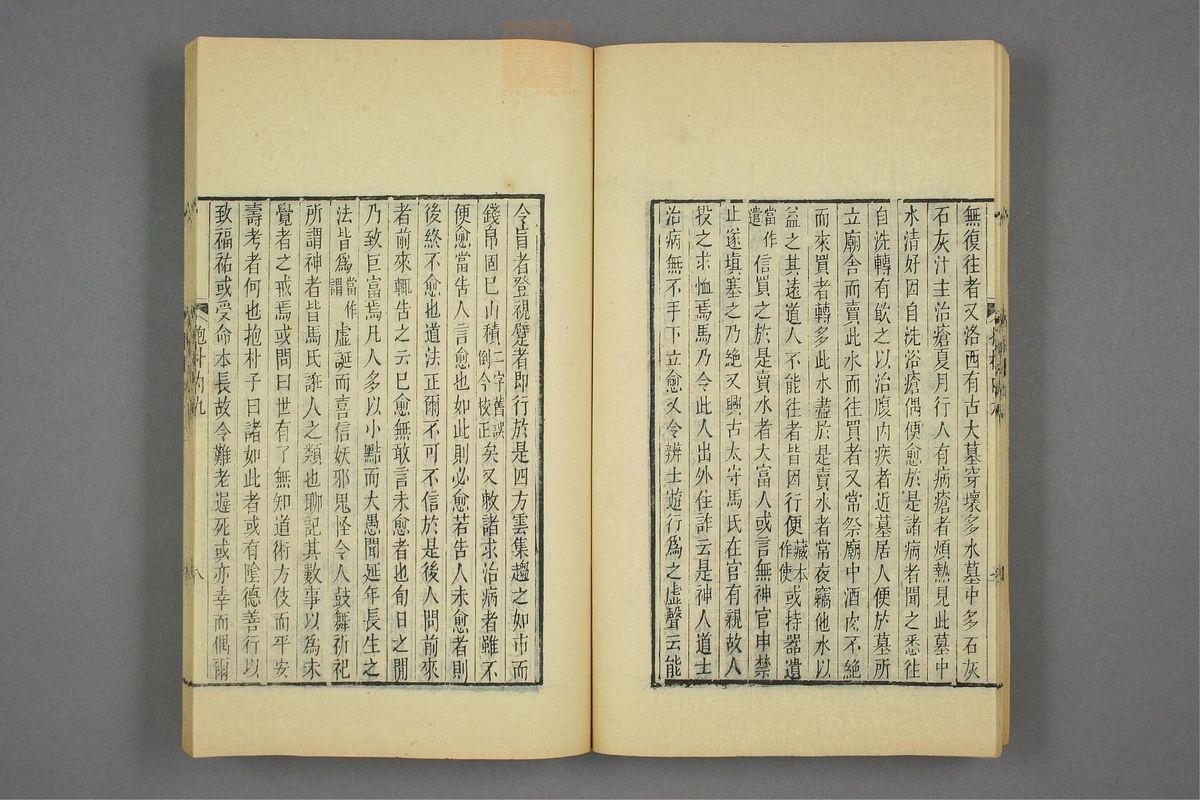 無復往者又洛西有古大墓穿壞多水墓中多石灰
石灰汁主治瘡夏月行人有病瘡者煩熱見此墓中
水清好因自洗浴瘡偶便愈於是諸病者聞之悉往
自洗轉有飲之以治腹內疾者近墓居人便於墓所
立廟舍而賣此水而往買者又常祭廟中酒肉不絕
而來買者轉多此水盡於是賣水者常夜竊他水以
益之其遠道人不能往者皆因行便藏本作使或持器遺
當作遣信買之於是賣水者大富人或言無神官申禁
止遂填塞之乃絕又興古太守馬氏在官有親故人
投之求恤焉馬乃令此人出外住詐云是神人道士
治病無不手下立愈又令辨士遊行為之虛聲云能
令盲者登視躄者即行於是四方雲集趨之如市而
錢帛固已山積二字舊誤倒今校正矣又敕諸求治病者雖不
便愈當告人言愈也如此則必愈若告人未愈者則
後終不愈也道法正爾不可不信於是後人問前來
者前來輒告之云已愈無敢言未愈者也旬日之閒
乃致巨富焉凡人多以小黠而大愚聞延年長生之
法皆為當作謂虛誕而喜信妖邪鬼怪令人鼓舞祈祀
所謂神者皆馬氏誑人之類也聊記其數事以為未
覺者之戒焉或問曰世有了無知道術方伎而平安
壽考者何也抱朴子曰諸如此者或有陰德善行以
致福祐或受命本長故令難老遲死或亦幸而偶爾
抱朴內九
八